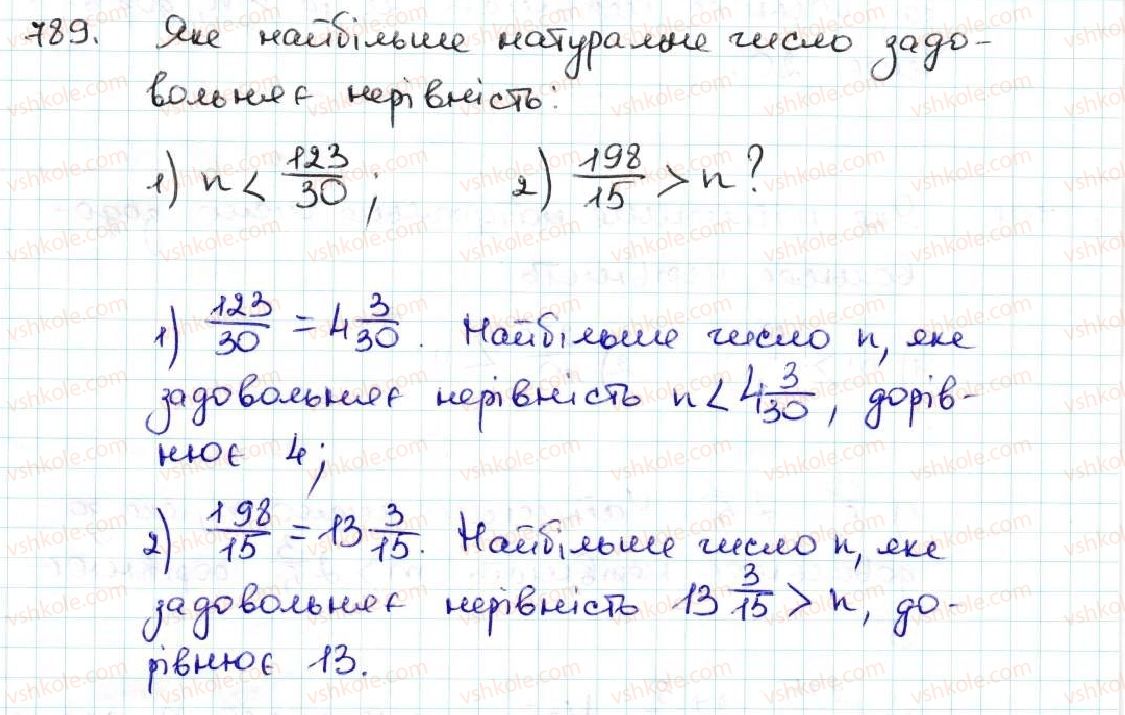 789. Яке найбільше натуральне число задо-
вольняє нерівність:
1) n < 123/30; 2) 198/15 > n?
1) 123/30 = 4 3/30. Найбільше число n, яке
задовольняє нерівність n < 4 3/30, дорів-
нює 4;
2) 198/15 = 13 3/15. Найбільше число n, яке
задовольняє нерівність 13 3/15 > n, до-
рівнює 13.
vshkole.com